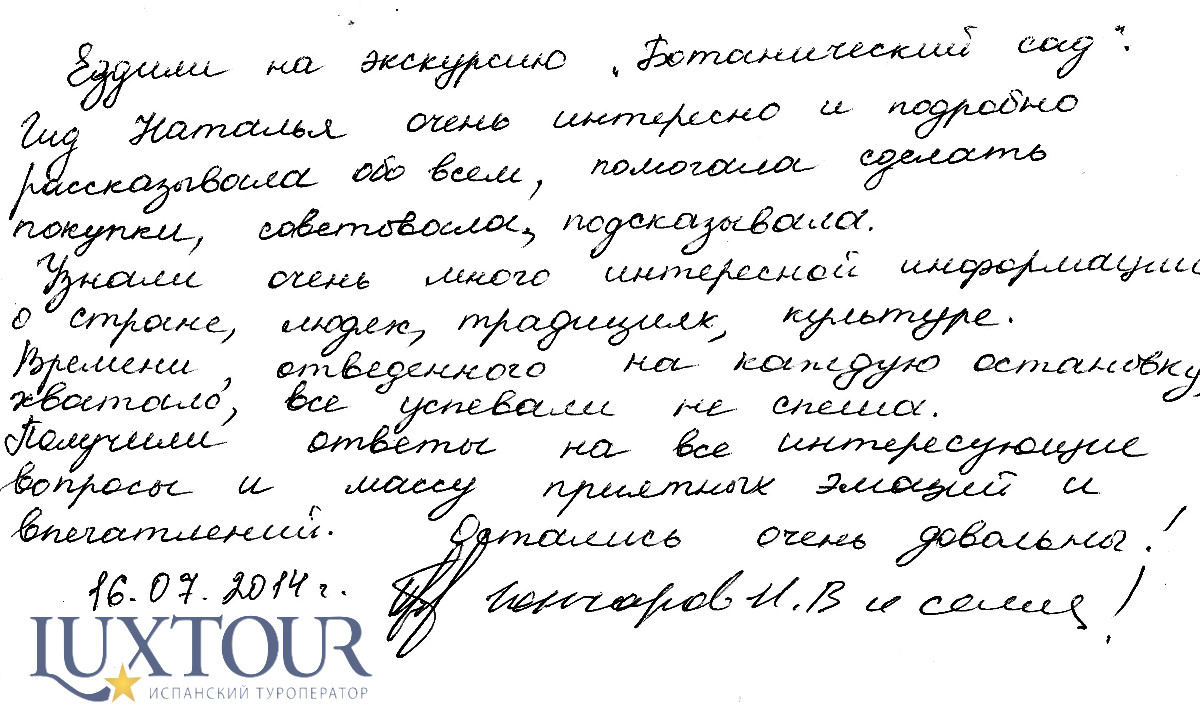 Ездили на экскурсию „Ботанический сад".
Гид Наталья очень интересно и подробно
рассказывала обо всем, помогала сделать
покупки, советовала, подсказывала.
Узнали очень много интересной информации
о стране, людях, традициях, культуре.
Времени, отведенного на каждую остановку,
хватало, все успевали не спеша.
Получили ответы на все интересующие
вопросы и массу приятных эмоций и
впечатлений. Остались очень довольны!
16.07.2014 г. Гончаров И.В и семья!
LUXTOUR
ИСПАНСКИЙ ТУРОПЕРАТОР